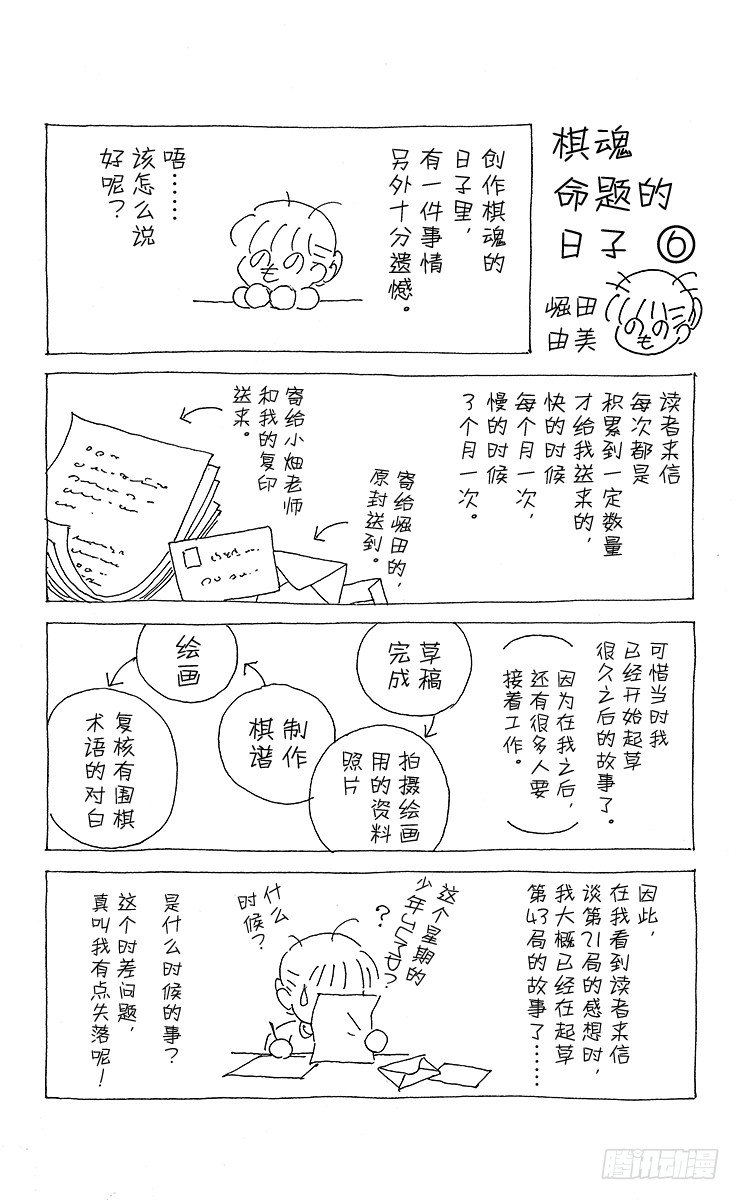 棋魂
命题的
日子 ⑥
崛田
由美
创作棋魂的
日子里，
有一件事情
另外十分遗憾。
唔……
该怎么说
好呢？
读者来信
每次都是
积累到一定数量
才给我送来的，
快的时候
每个月一次，
慢的时候
3个月一次。
寄给小畑老师
和我的复印
送来。
寄给崛田的，
原封送到。
可惜当时我
已经开始起草
很久之后的故事了。
因为在我之后，
还有很多人要
接着工作。
草稿
完成
拍摄绘画
用的资料
照片
制作
棋谱
绘画
复核有围棋
术语的对白
因此，
在我看到读者来信
谈第21局的感想时，
我大概已经在起草
第43局的故事了……
这个星期的
少年JUMP？
？
什么
时候？
是什么时候的事？
这个时差问题，
真叫我有点失落呢！
腾讯动漫